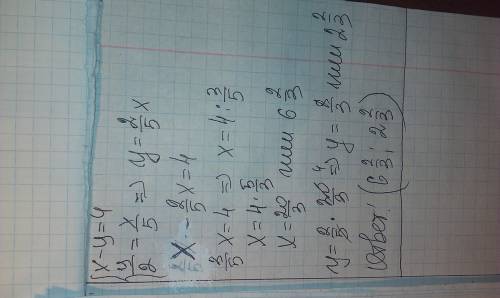 { x-y=4
{ y/2 = x/5 => y = 2/5 x
x - 2/5 x = 4
3/5 x = 4 => x = 4 : 3/5
x = 4 · 5/3
x = 20/3 или 6 2/3
y = 2/5 · 20/3 4 => y = 8/3 или 2 2/3
Ответ: (6 2/3; 2 2/3)